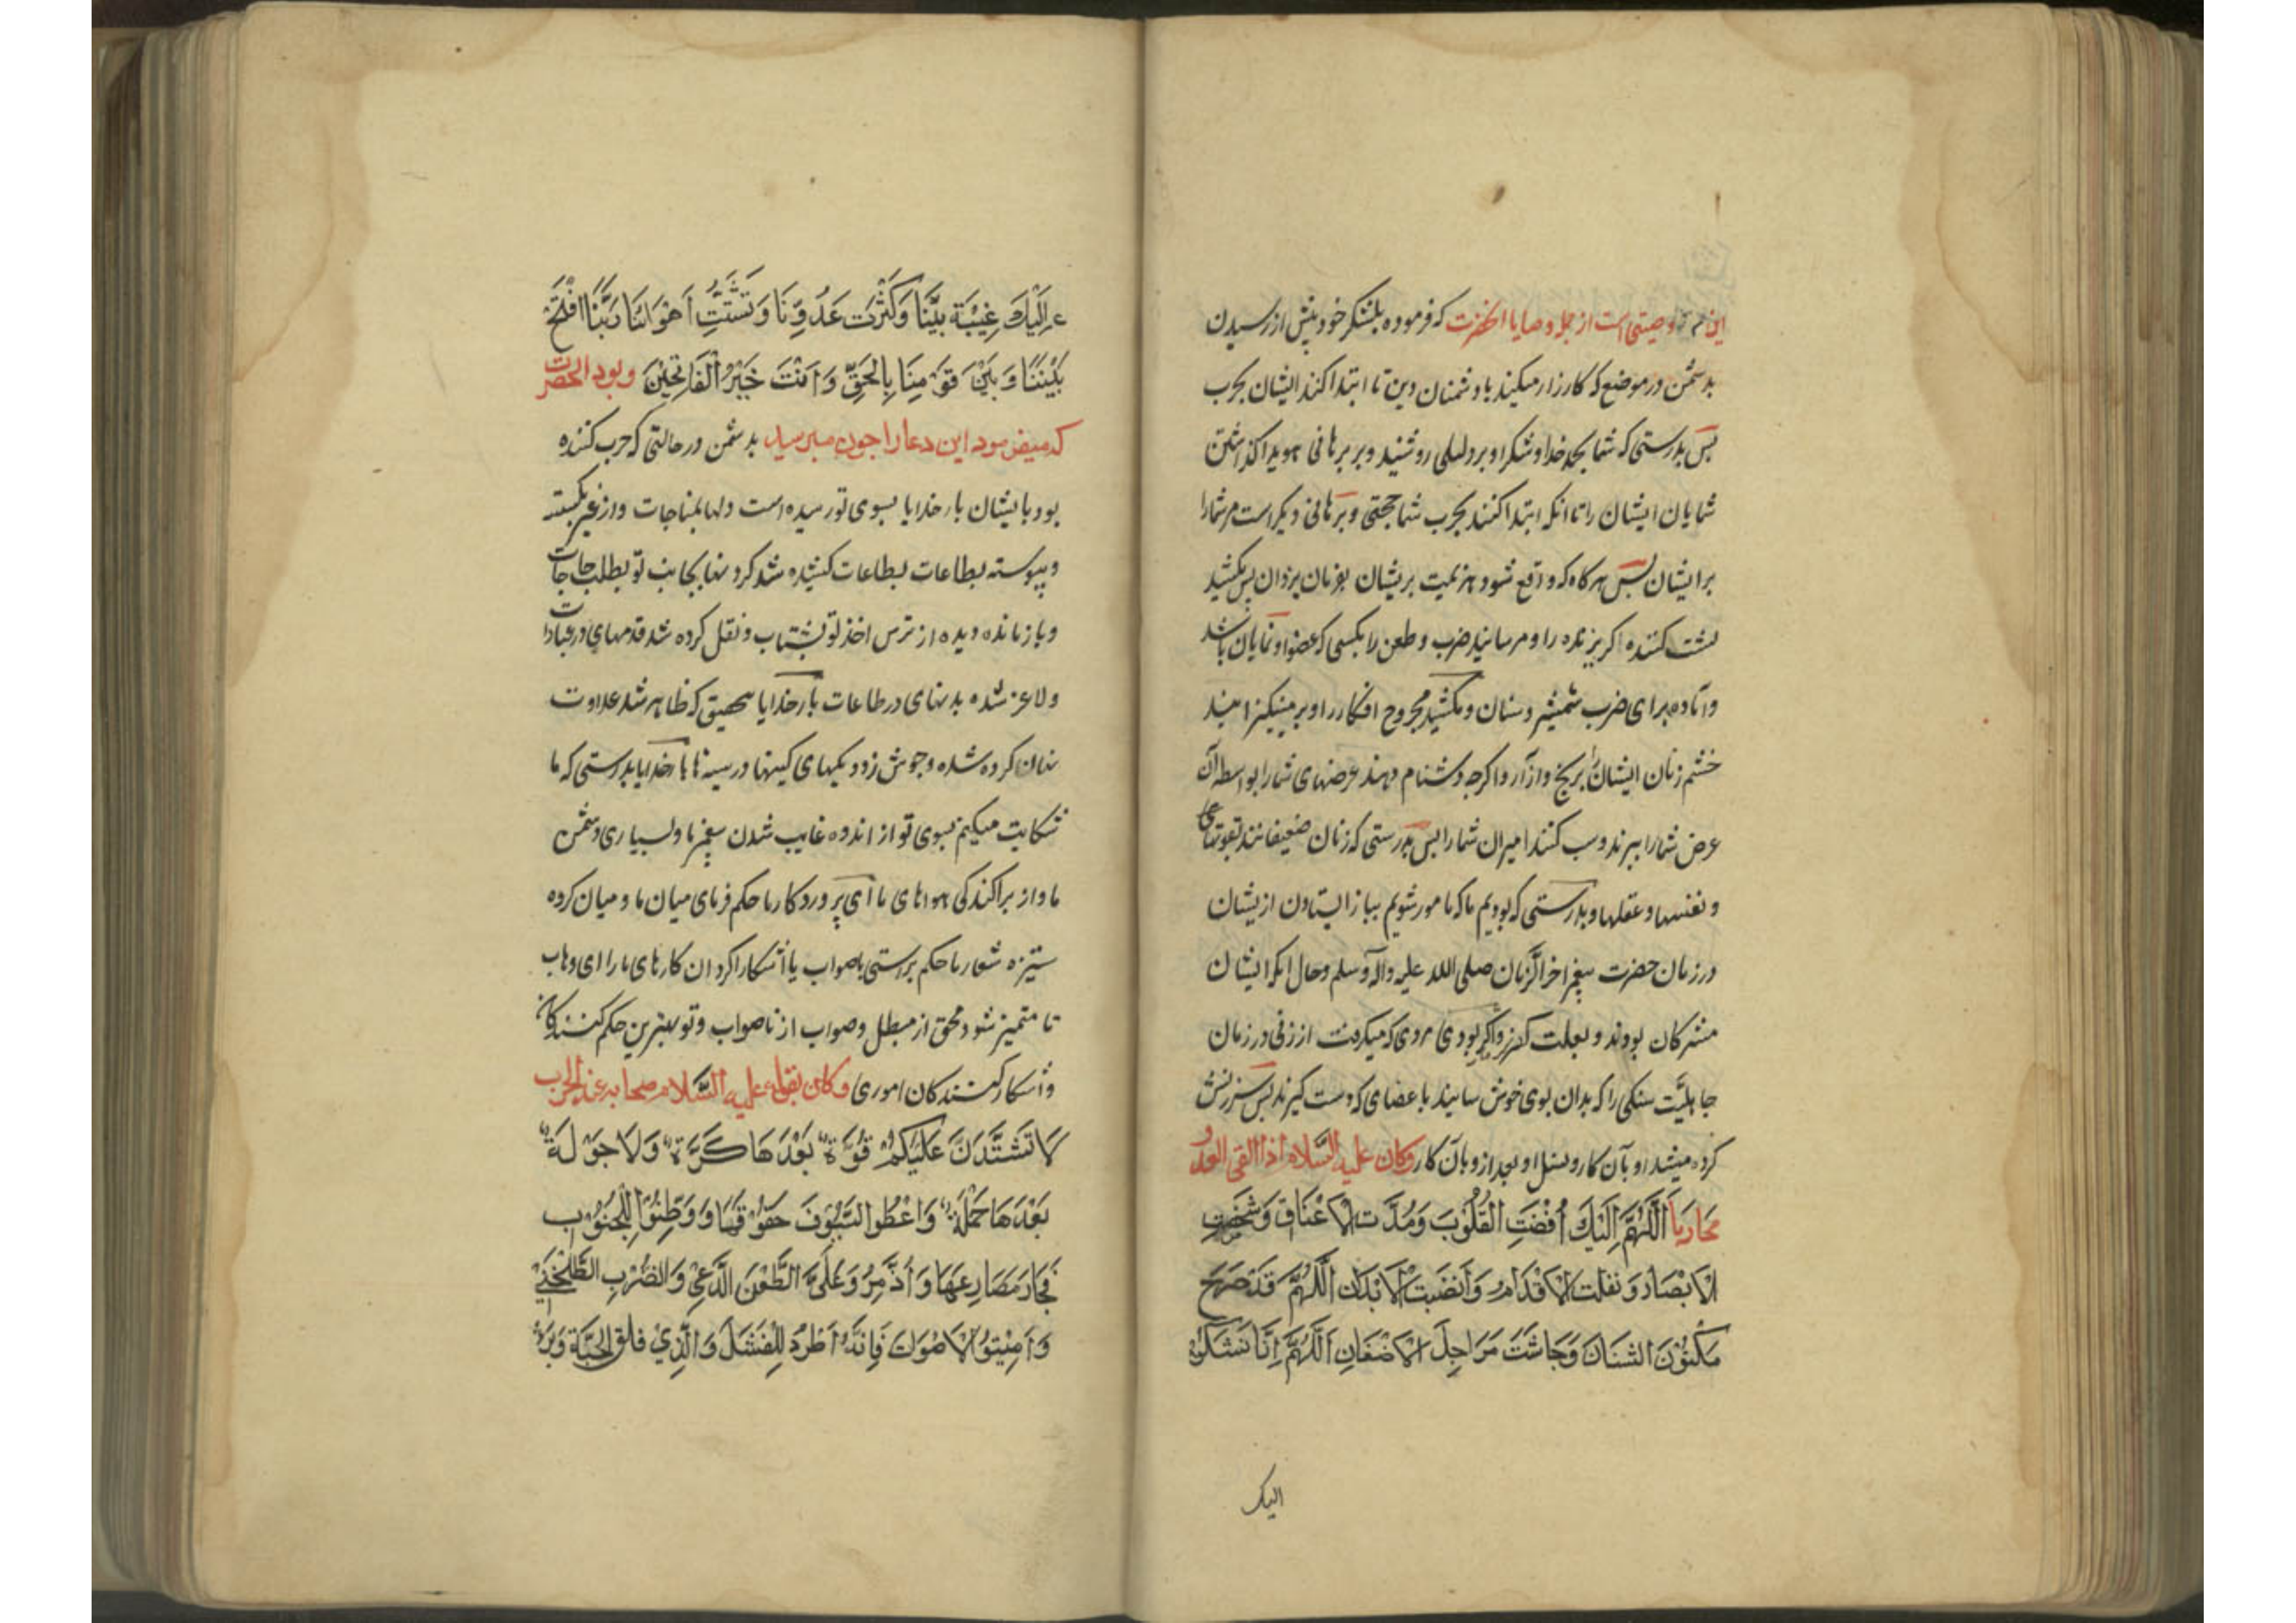 این وصیتی است از جمله وصایا انحضرت که فرموده بلشکر خود پیش از رسیدن
بدشمن در موضع که کارزار میکنید با دشمنان دین تا ابتدا کند ایشان بحرب
پس بدرستی که شما بحمد خدا و شکر او بر دلیلی روشنید و بر برهانی هویدا گذاشتن
شمایان ایشان را تا انکه ابتدا کنند بحرب شما حجتی و برهانی دیکر است مر شما را
بر ایشان پس هر کاه که واقع شود هزیمت بر یشان بفرمان یزدان پس مکشید
پشت کننده کریزنده را و مرسانید ضرب و طعن را بکسی که عضو او نمایان باشد
و آماده برای ضرب شمشیر و سنان و مکشید مجروح افکار را و بر مینکیزانید
خشم زنان ایشان را برنج و آزار و اکرچه دشنام دهند عرضهای شما را بواسطه آن
عرض شما را ببرند و سب کنند امیران شما را پس بدرستی که زنان ضعیفانند بقوتهای
و نفسها و عقلها و بدرستی که بودیم ما که مامور شویم بباز ایستادن از یشان
در زمان حضرت پیغمبر اخر الزمان صلی الله علیه واله وسلم وحال انکه ایشان
مشرکان بودند و بعلت کفر و اکر بودی مردی که میکرفت از زنی در زمان
جاهلیت سنکی را که بدان بوی خوش سایند با عصای که دست کیرند پس سرزنش
کرده میشد او بآن کار و نسل او بعد از و بآن کار وکان علیه السلام اذا القی العدو
مُحَارِبًا اَللّٰهُمَّ اِلَیْكَ اُفْضَتِ الْقُلُوْبَ وَمُدَّتِ الْاَعْنَاقِ وَشَخَصَتِ
الْاَبْصَارُ وَنُقِلَتِ الْاَقْدَامُ وَاَنْضَیَتِ الْاَبْدَانُ اَللّٰهُمَّ قَدْ صَرَحَ
مَكْنُوْنَ الشَّنَانَ وَجَاشَتْ مَرَاجِلَ الْاَضْغَانِ اَللّٰهُمَّ اِنَّا نَشْكُوْا
الیک
اِلَیْكَ غِیْبَةَ نَبِیِّنَا وَكَثْرَتَ عَدُوِّنَا وَتَشَتُّتِ اَهْوَائِنَا رَبَّنَا افْتَحْ
بَیْنَنَا وَبَیْنَ قَوْمِنَا بِالْحَقِّ وَاَنْتَ خَیْرُ الْفَاتِحِیْنَ وبود انحضرت
که میفرمود این دعا را چون میرسید بدشمن در حالتی که حرب کننده
بود با یشان بار خدایا بسوی تو رسیده است دلها بمناجات و از غیر بکسسته
و پیوسته بطاعات بطاعات کشیده شد کردنها بجانب تو بطلب حاجات
و باز مانده دیده از ترس اخذ تو بشتاب و نقل کرده شد قدمهای در عبادات
و لاغر شده بدنهای در طاعات بار خدایا بتحقیق که ظاهر شد عداوت
نهان کرده شده و جوش زد دیکهای کینها در سینه ها بار خدایا بدرستی که ما
شکایت میکنیم بسوی تو از اندوه غایب شدن پیغمبر ما و بسیاری دشمن
ما و از پراکندکی هواهای ما ای پروردکار ما حکم فرمای میان ما و میان کروه
ستیزه شعار ما حکم براستی با صواب یا آشکارا کردان کارهای ما را ای وهاب
تا متمیز شود محق از مبطل و صواب از ناصواب و تو بهترین حکم کنندکانی
و آشکار کنندکان اموری وکان یقول علیه السلام صحابه عند الحرب
لَا تَشْتَدَّنَّ عَلَیْكُمْ فُرَّةٌ بَعْدَهَا كَرَّةٌ وَلَا جَوْلَةٌ
بَعْدَهَا حَمْلَةٌ وَاعْطُوا السُّیُوْفَ حَقُوْقَهَا وَوَطِّنُوْا لِلْجُنُوْبِ
مَصَارِعَهَا وَاَذْمِرُوْا عَلَی الطَّعْنِ الدَّعْسِیِّ وَالضَّرْبِ الطَّلَحْفِیِّ
وَاَمِیْتُوْا الْاَصْوَاتَ فَاِنَّهُ اَطْرَدُ لِلْفَشَلَ وَالَّذِیْ فَلَقَ الْحَبَّةَ وَبَرَءَ